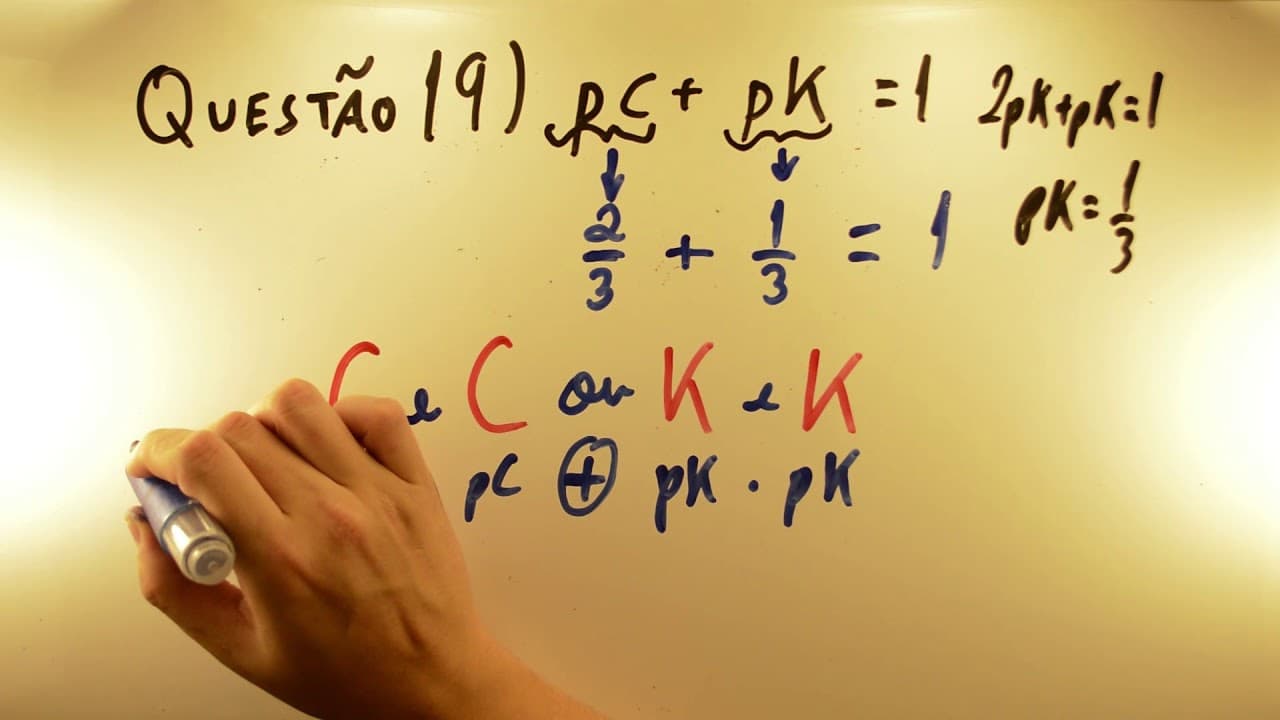 QUESTÃO 19) pC + pK = 1 2pK+pK=1
2/3 + 1/3 = 1 pK=1/3
C e C ou K e K
pC + pK · pK